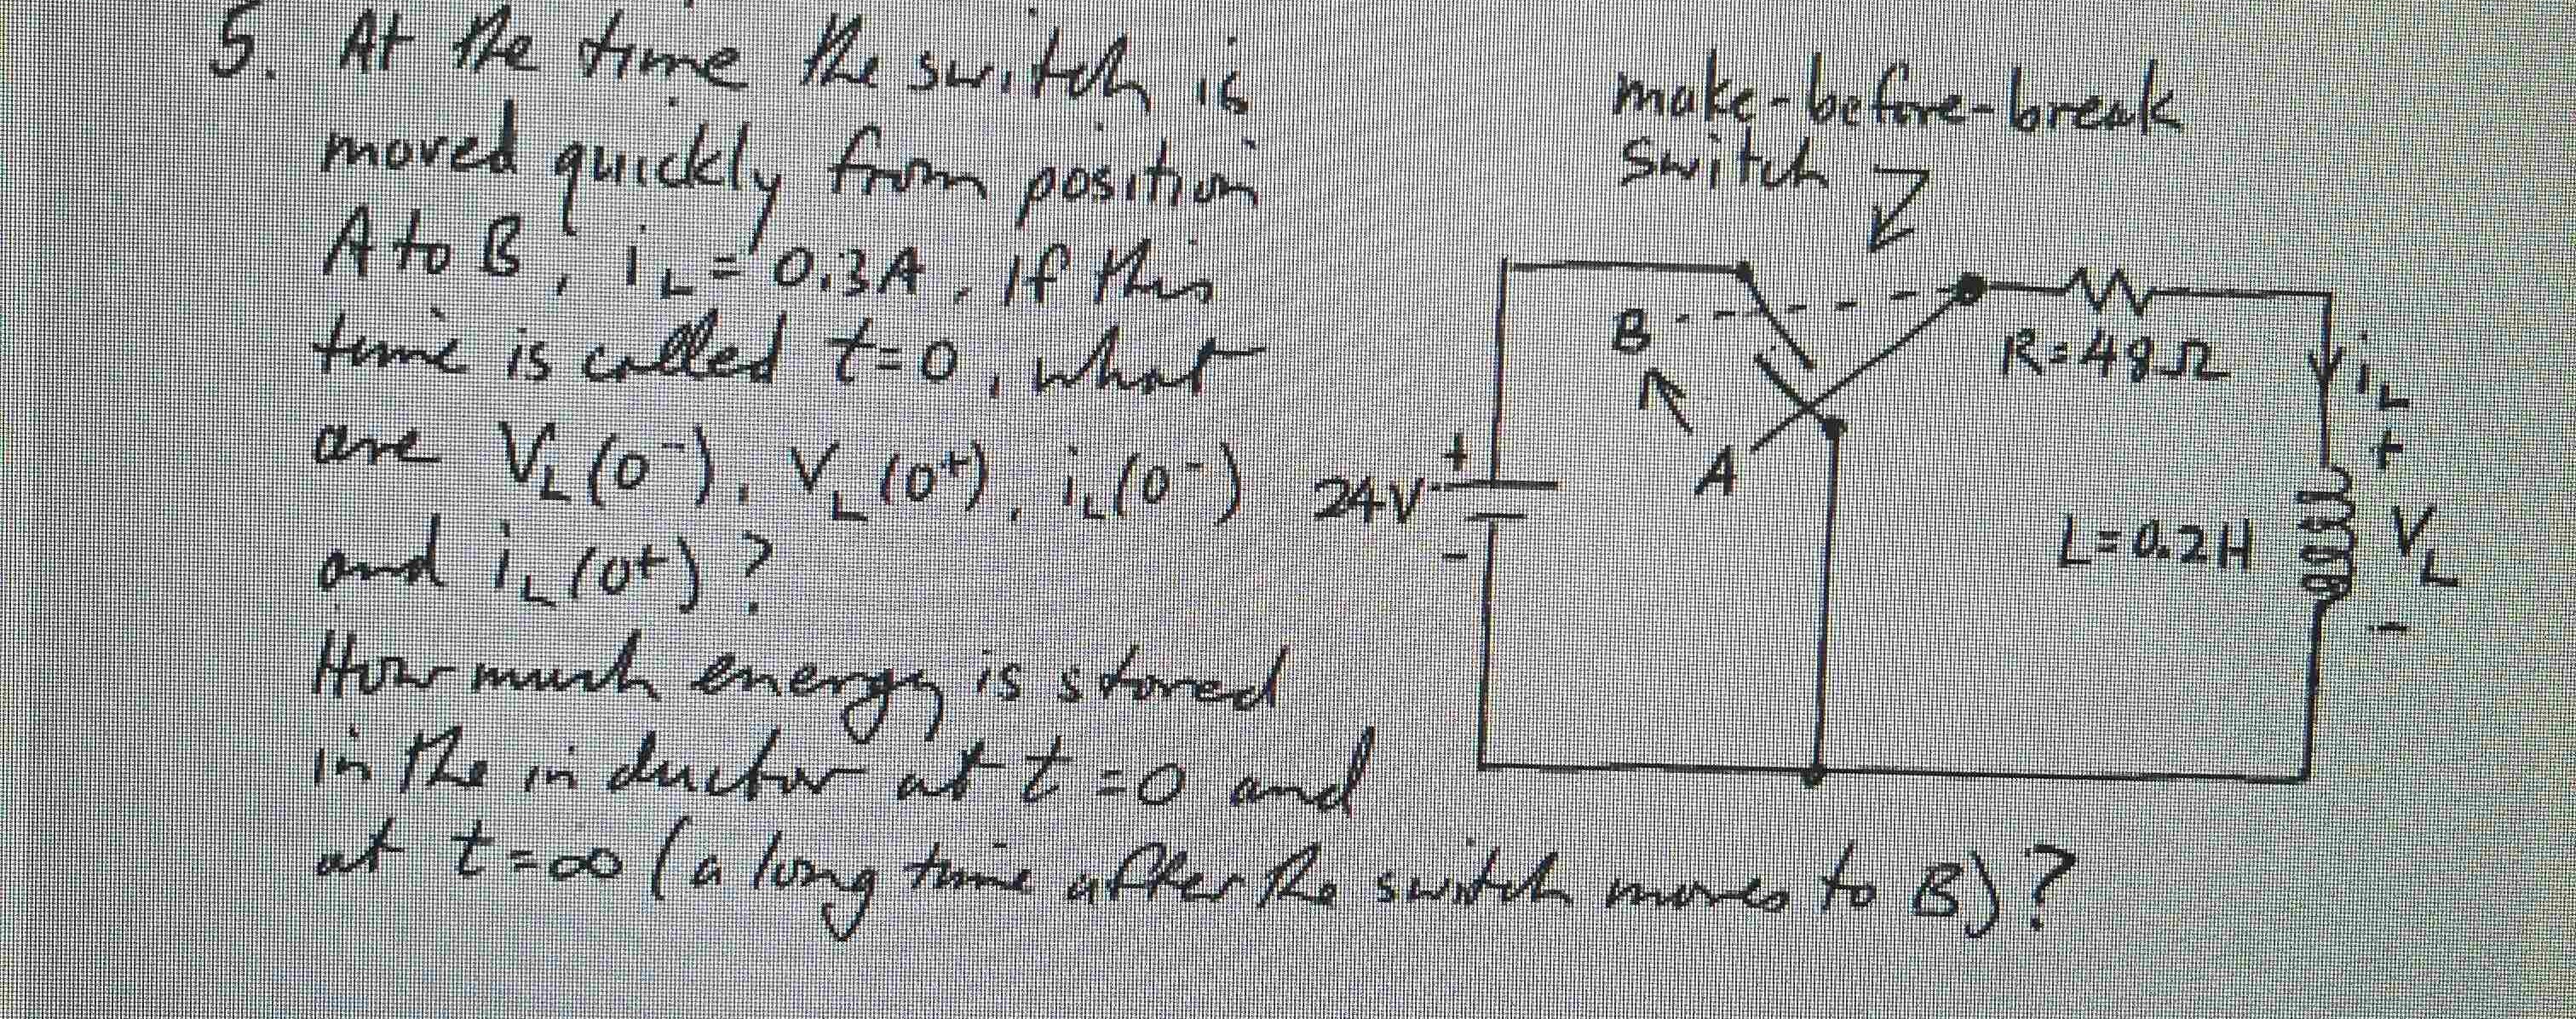 5. At the time the switch is
moved quickly from position
A to B, iL = 0.3A. If this
time is called t=0, what
are VL(0⁻), VL(0⁺), iL(0⁻)
and iL(0⁺)?
How much energy is stored
in the inductor at t=0 and
at t=∞ (a long time after the switch moves to B)?
make-before-break
switch
B
A
R=48Ω
iL
+
24V
-
L=0.2H
+
VL
-